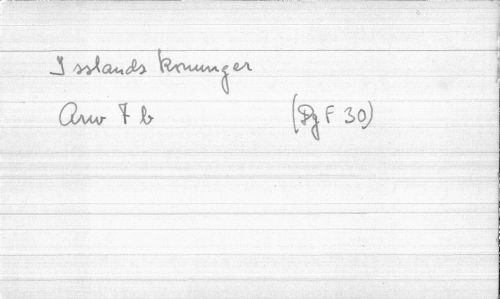 Isslands konunger
Arw 7 b (Pg F 30)